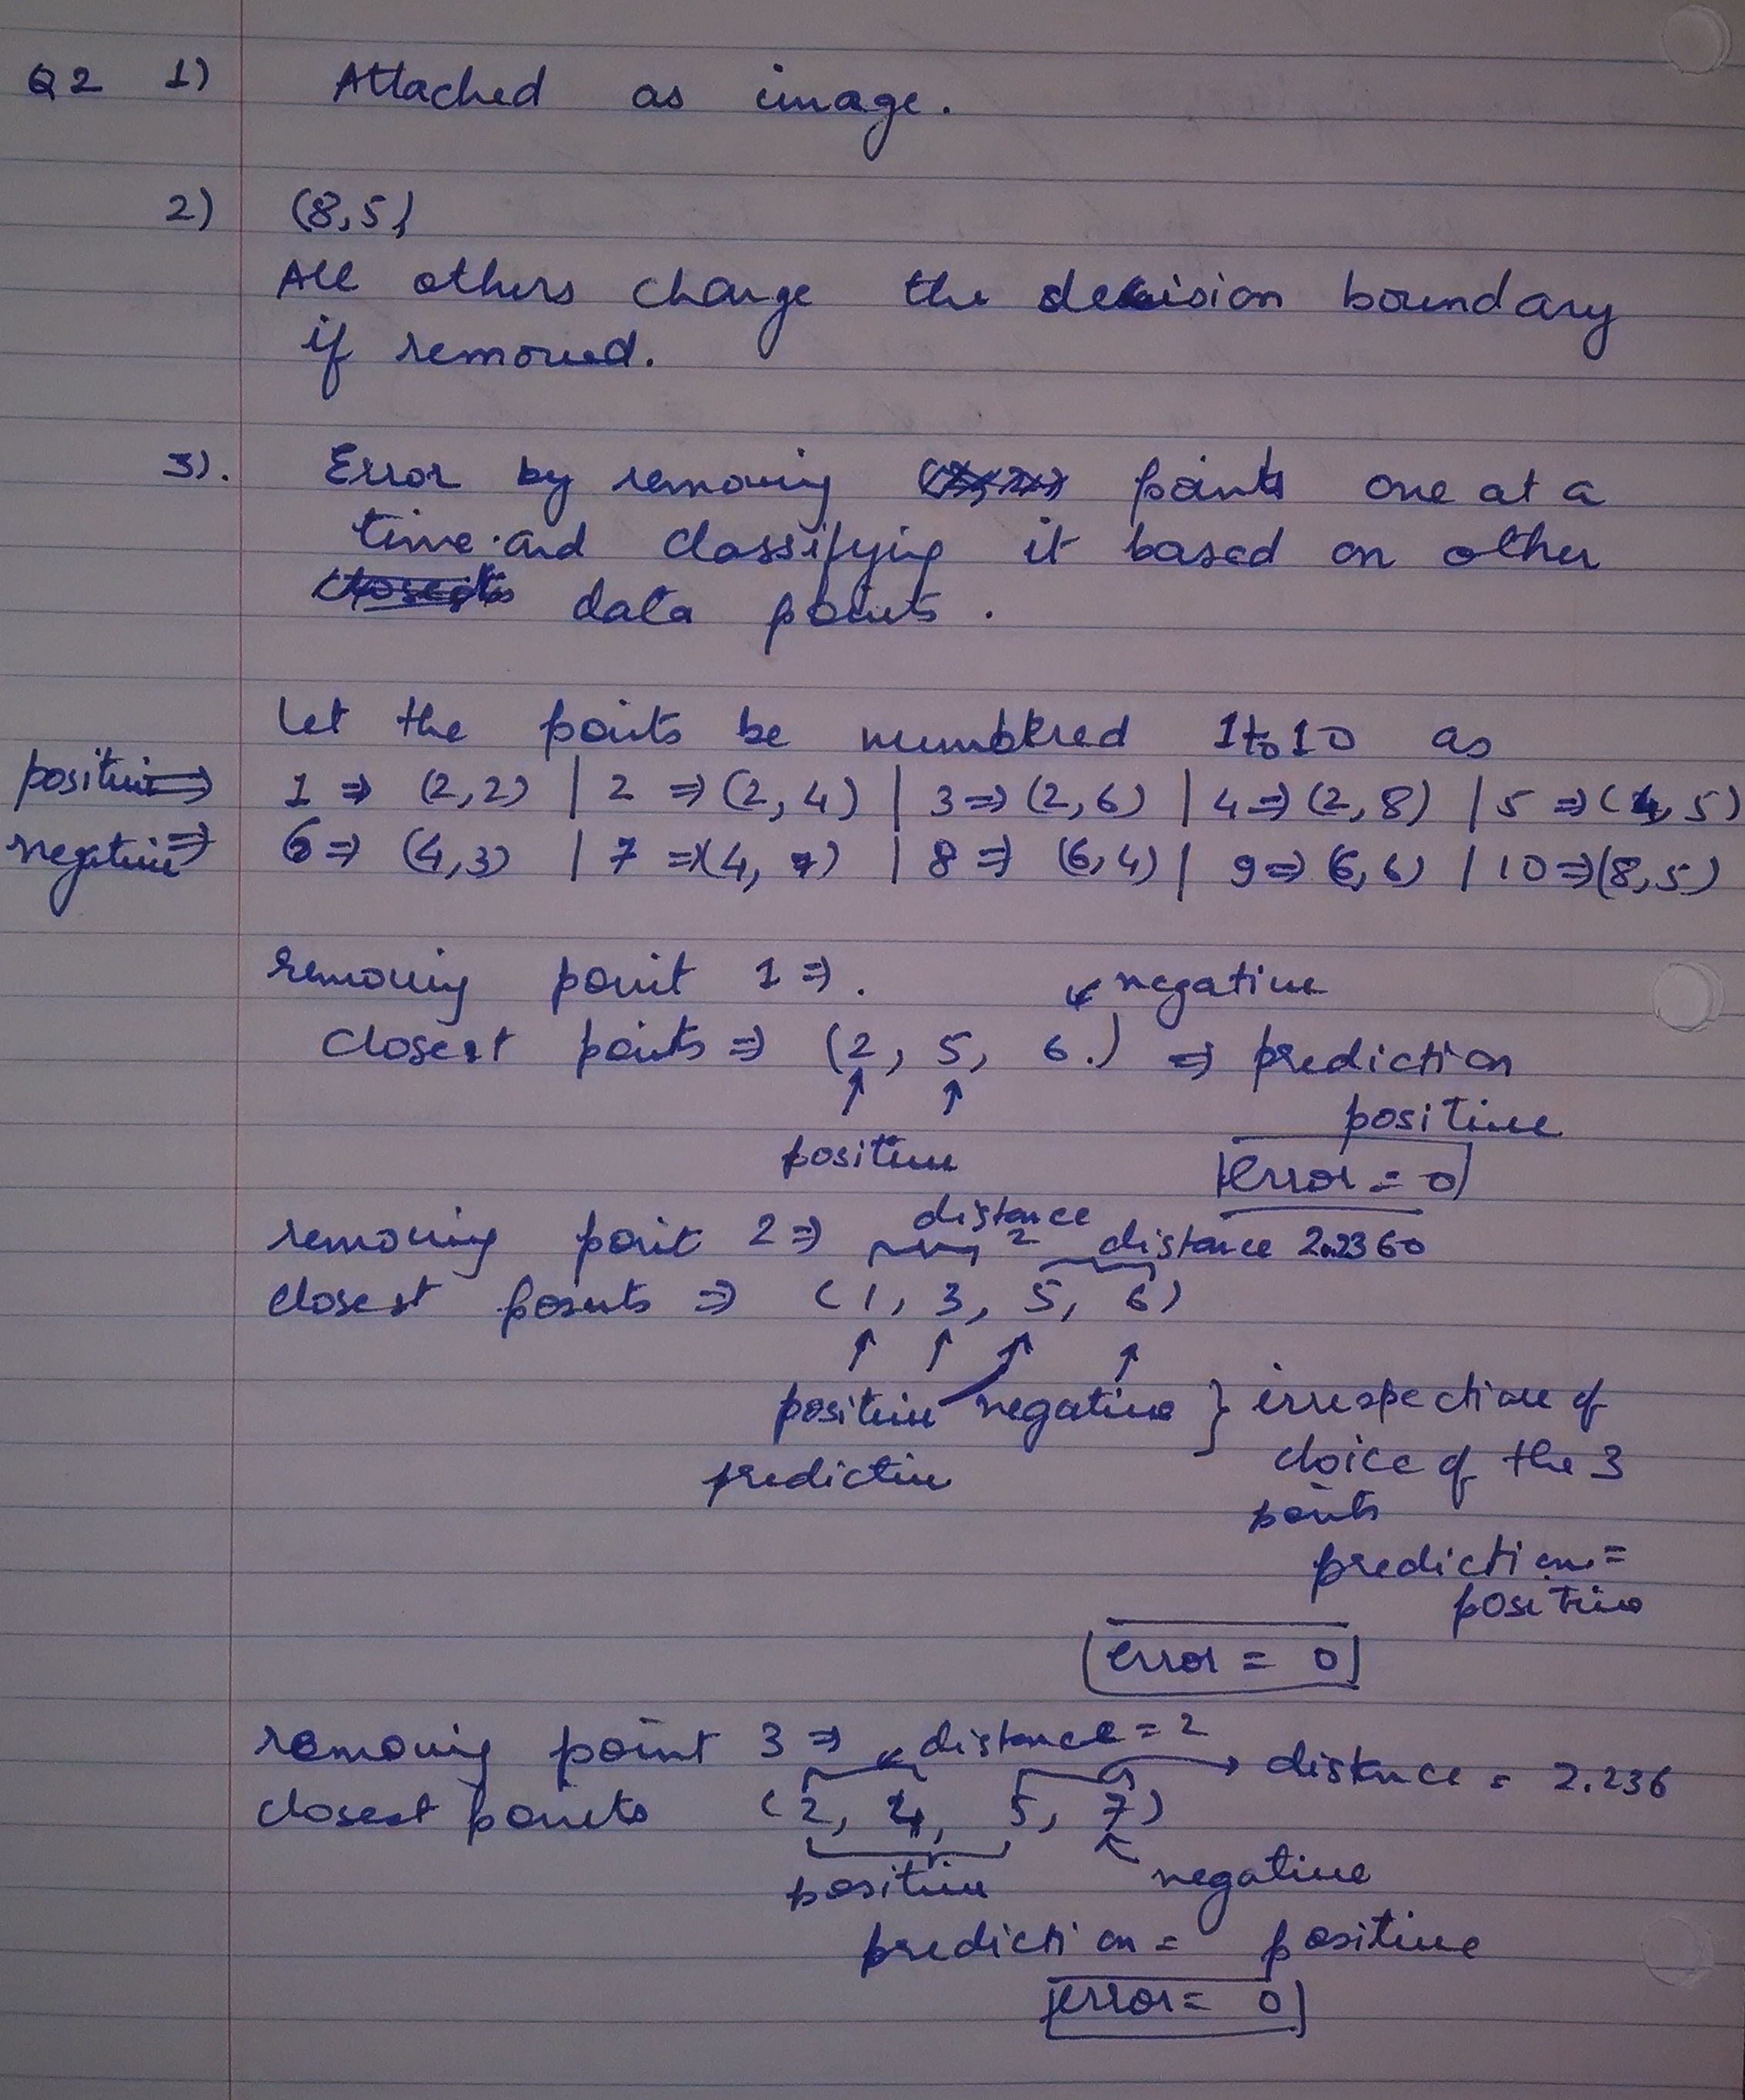 Q2 1) Attached as image.
2) (8,5)
All others change the decision boundary
if removed.
3). Error by removing points one at a
time and classifying it based on other
data points.
Let the points be numbered 1 to 10 as
positive ⇒ 1 ⇒ (2,2) | 2 ⇒ (2,4) | 3 ⇒ (2,6) | 4 ⇒ (2,8) | 5 ⇒ (1,5)
negative ⇒ 6 ⇒ (4,3) | 7 ⇒ (4,7) | 8 ⇒ (6,4) | 9 ⇒ (6,6) | 10 ⇒ (8,5)
removing point 1 ⇒. ↙ negative
closest points ⇒ (2, 5, 6.) ⇒ prediction
positive
positive
error = 0
removing point 2 ⇒ distance 2 distance 2.2360
closest points ⇒ (1, 3, 5, 6)
positive negative } irrespective of
predictive choice of the 3
points
prediction =
positive
error = 0
removing point 3 ⇒ distance = 2
closest points (2, 4, 5, 7) → distance = 2.236
positive negative
prediction = positive
error = 0